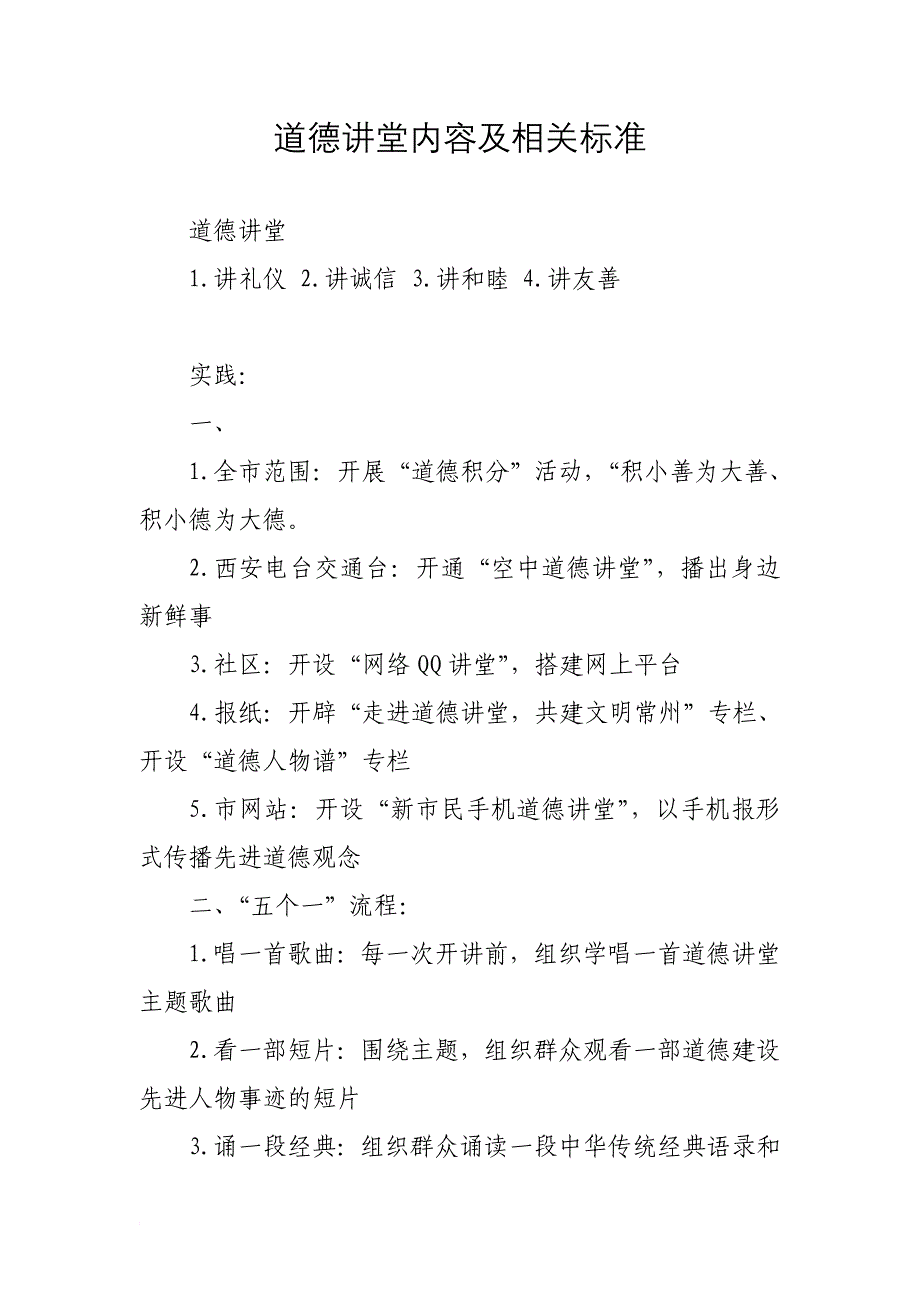 道德讲堂内容及相关标准
道德讲堂
1.讲礼仪 2.讲诚信 3.讲和睦 4.讲友善
实践：
一、
1.全市范围：开展“道德积分”活动，“积小善为大善、
积小德为大德。
2.西安电台交通台：开通“空中道德讲堂”，播出身边
新鲜事
3.社区：开设“网络QQ讲堂”，搭建网上平台
4.报纸：开辟“走进道德讲堂，共建文明常州”专栏、
开设“道德人物谱”专栏
5.市网站：开设“新市民手机道德讲堂”，以手机报形
式传播先进道德观念
二、“五个一”流程：
1.唱一首歌曲：每一次开讲前，组织学唱一首道德讲堂
主题歌曲
2.看一部短片：围绕主题，组织群众观看一部道德建设
先进人物事迹的短片
3.诵一段经典：组织群众诵读一段中华传统经典语录和